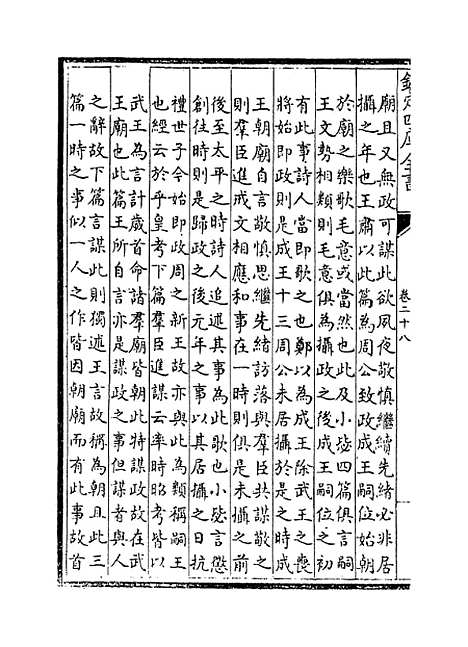 欽定四庫全書
卷二十八
廟且又無政可謀此欲夙夜敬慎繼續先緒必非居
攝之年也王肅以此篇為周公致政成王嗣位始朝
於廟之樂歌毛意或當然也此及小毖四篇俱言嗣
王文勢相類則毛意俱為攝政之後成王嗣位之初
有此事詩人當即歌之也鄭以為成王除武王之喪
將始即政則是成王十三周公未居攝於是之時成
王朝廟自言敬慎思繼先緒訪落與羣臣共謀敬之
則羣臣進戒文相應和事在一時則俱是未攝之前
後至太平之時詩人追述其事為此歌也小毖言懲
創往時則是歸政之後元年之事以其居攝之日抗
禮世子今始即政周之新王故亦與此為類稱嗣王
也經云於乎皇考下篇羣臣進謀云率時昭考皆以
武王為言計歲首命諸羣廟皆朝此特謀政故在武
王廟也此篇王所自言亦是謀政之事但謀者與人
之辭故下篇言謀此則獨述王言故稱為朝且此三
篇一時之事似一人之作皆因朝廟而有此事故首